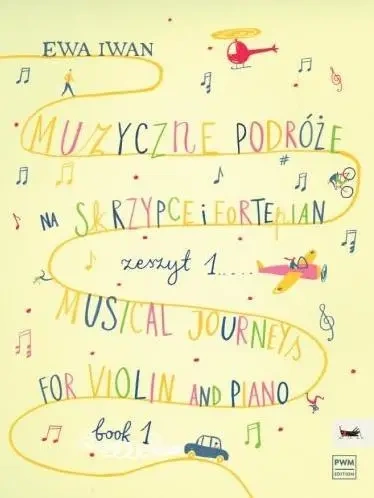 EWA IWAN
MUZYCZNE PODRÓŻE
NA SKRZYPCE i FORTEPIAN
zeszyt 1.....
MUSICAL JOURNEYS
FOR VIOLIN AND PIANO
book 1
PWM
EDITION